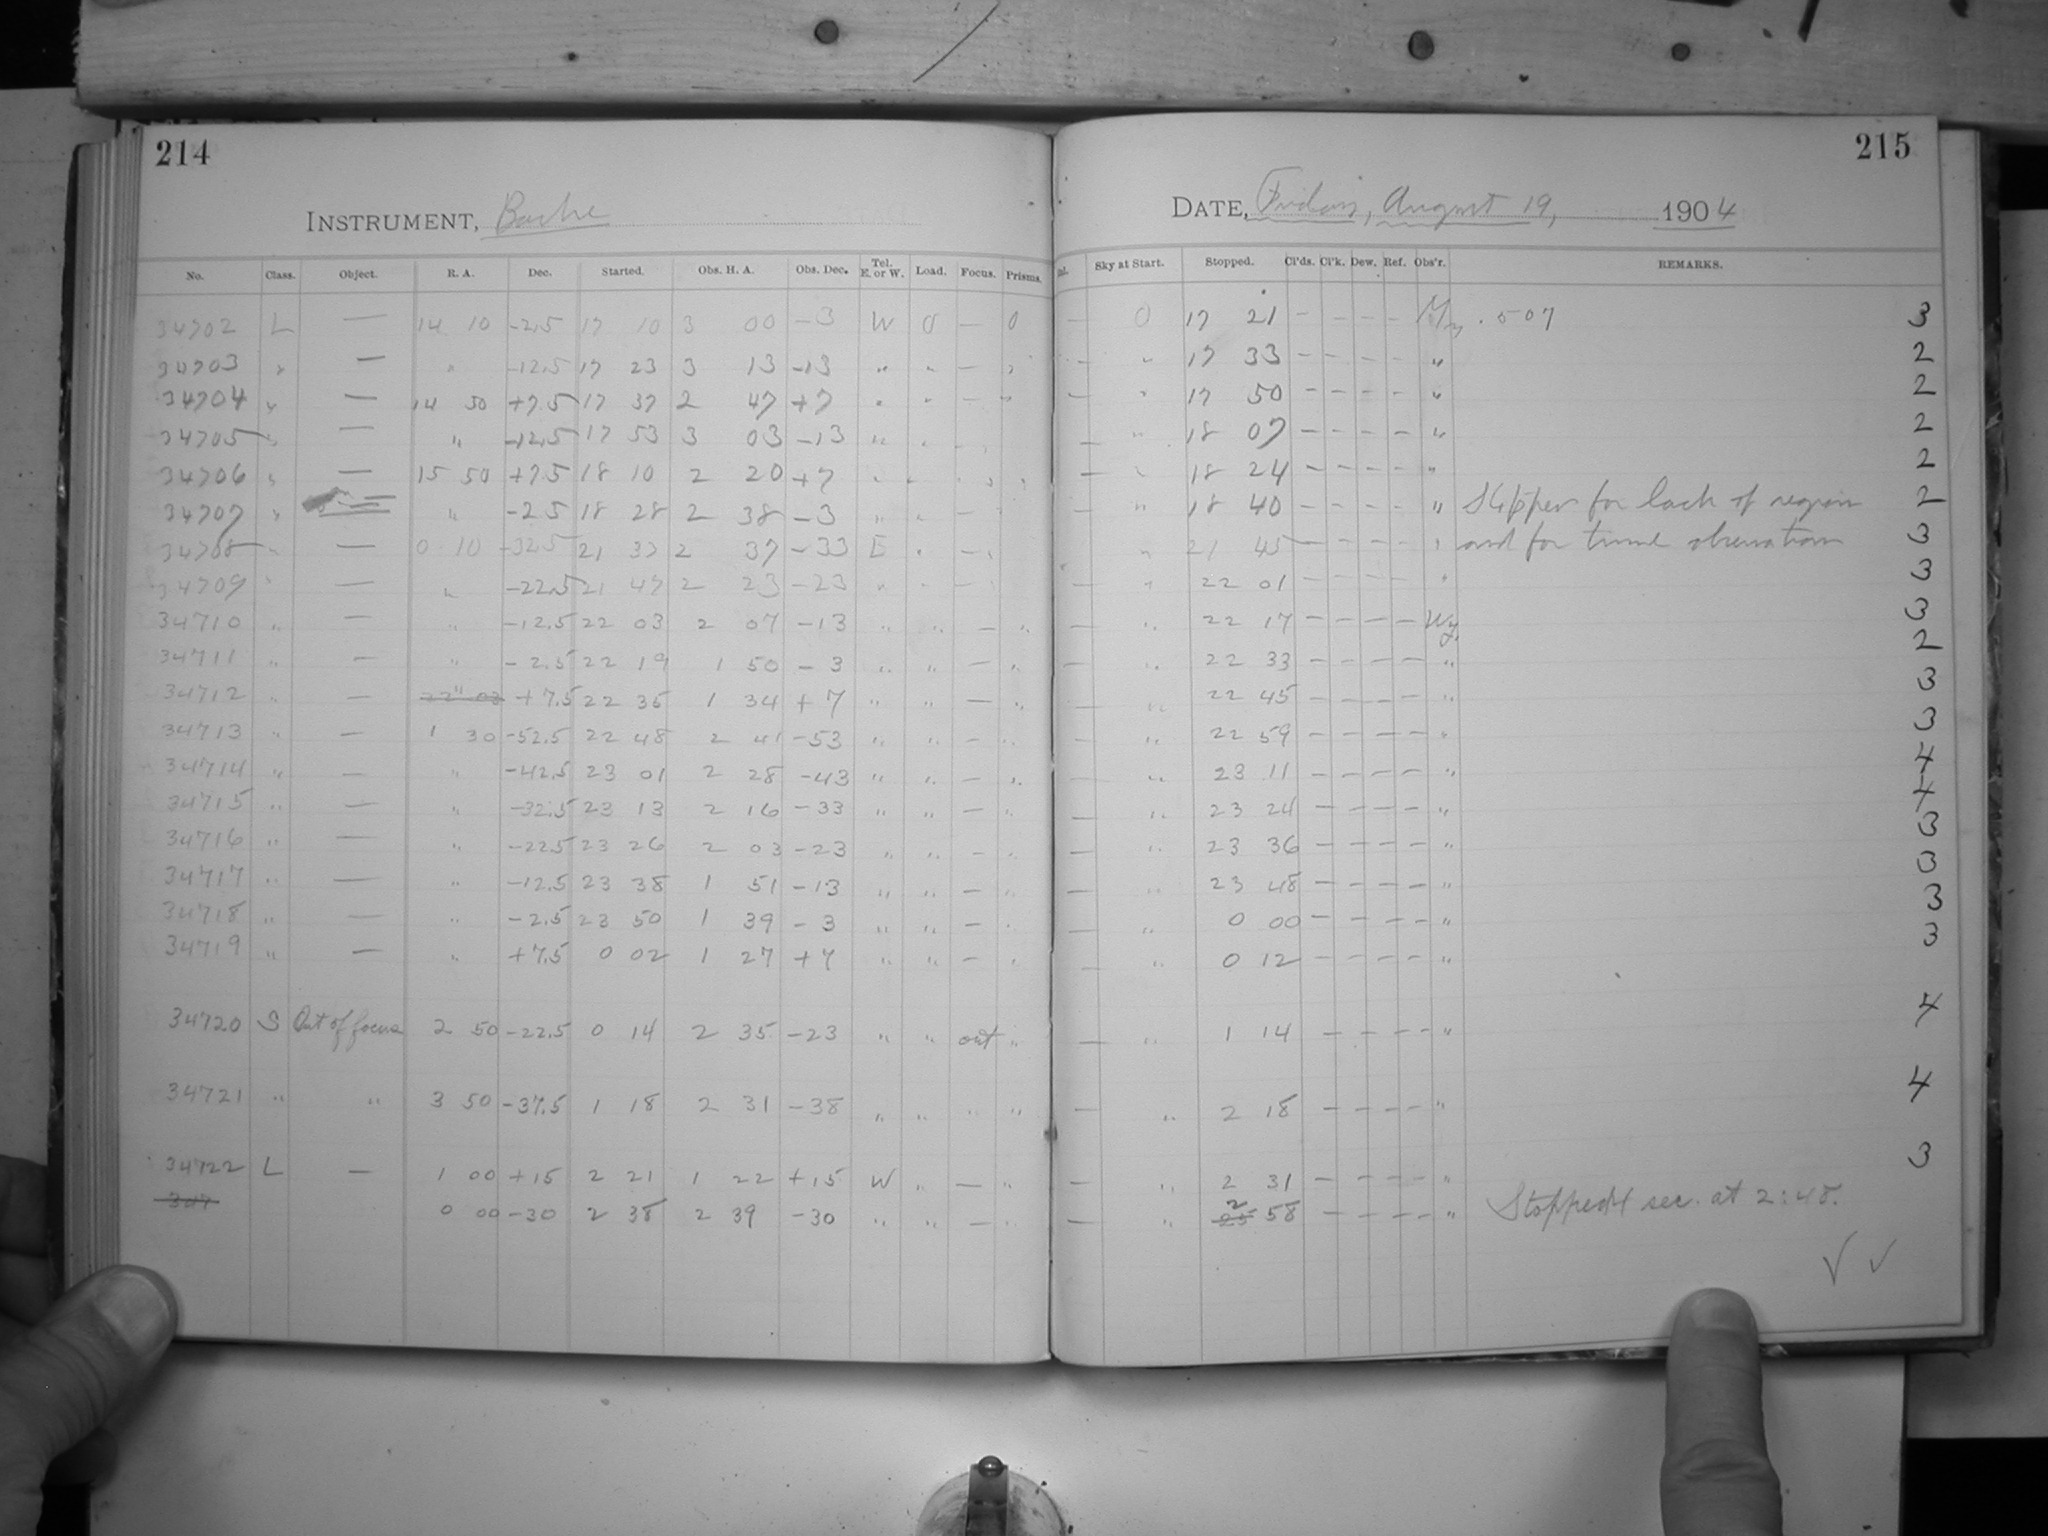 214
215
INSTRUMENT, Bache
DATE, Friday, August 19, 1904
No. Class. Object. R. A. Dec. Started. Obs. H. A. Obs. Dec. Tel. E. or W. Load. Focus. Prisms. Sky at Start. Stopped. Cl'ds. Cl'k. Dew. Ref. Obs'r. REMARKS.
34702 L — 14 10 -2.5 17 10 3 00 -3 W 0 — 0 — 0 17 21 — — — — .507 3
34703 " — " -12.5 17 23 3 13 -13 " " — " — " 17 33 — — — — " 2
34704 " — 14 50 +7.5 17 37 2 47 +7 " " — " — " 17 50 — — — — " 2
34705 " — " -12.5 17 53 3 03 -13 " " — " — " 18 07 — — — — " 2
34706 " — 15 50 +7.5 18 10 2 20 +7 " " — " — " 18 24 — — — — " 2
34707 " — " -2.5 18 28 2 38 -3 " " — " — " 18 40 — — — — " Stopped for lack of region 2
34708 " — 0 10 -32.5 21 37 2 37 -33 E " — " " 21 45 — — — — " and for time observations 3
34709 " — " -22.5 21 47 2 23 -23 " " — " — " 22 01 — — — — " 3
34710 " — " -12.5 22 03 2 07 -13 " " — " — " 22 17 — — — — 3
34711 " — " -2.5 22 19 1 50 -3 " " — " — " 22 33 — — — — " 2
34712 " — " +7.5 22 35 1 34 +7 " " — " " 22 45 — — — — " 3
34713 " — 1 30 -52.5 22 48 2 41 -53 " " — " " 22 59 — — — — " 3
34714 " — " -42.5 23 01 2 28 -43 " " — " " 23 11 — — — — " 4
34715 " — " -32.5 23 13 2 16 -33 " " — " — " 23 24 — — — — " 4
34716 " — " -22.5 23 26 2 03 -23 " " — " — " 23 36 — — — — " 3
34717 " — " -12.5 23 38 1 51 -13 " " — " — " 23 48 — — — — " 3
34718 " — " -2.5 23 50 1 39 -3 " " — " — " 0 00 — — — — " 3
34719 " — " +7.5 0 02 1 27 +7 " " — " — " 0 12 — — — — " 3
34720 S Out of focus 2 50 -22.5 0 14 2 35 -23 " " out " — " 1 14 — — — — " 4
34721 " " 3 50 -37.5 1 18 2 31 -38 " " " " — " 2 18 — — — — " 4
34722 L — 1 00 +15 2 21 1 22 +15 W " — " — " 2 31 — — — — " 3
347 0 00 -30 2 38 2 39 -30 " " — " — " 2 58 — — — — " Stopped 4 sec. at 2:48.
√ √